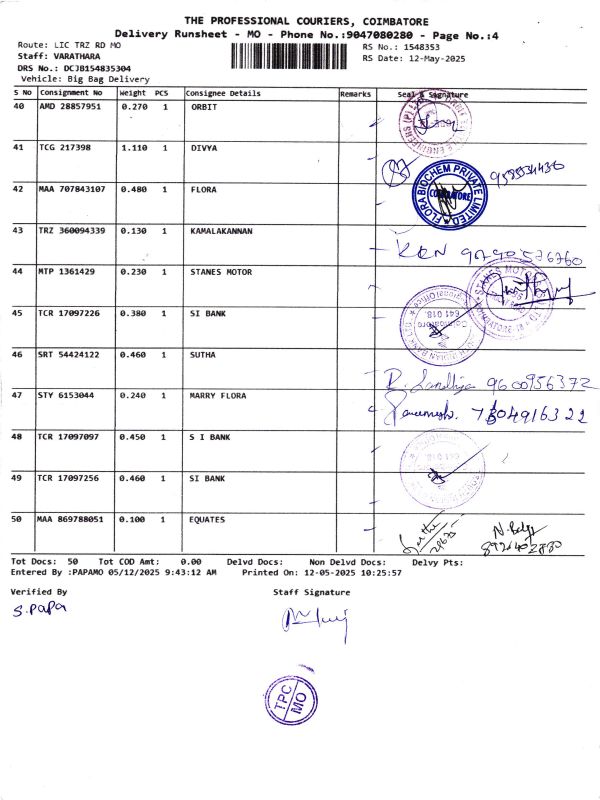 THE PROFESSIONAL COURIERS, COIMBATORE
Delivery Runsheet - MO - Phone No.:9047080280 - Page No.:4
Route: LIC TRZ RD MO
RS No.: 1548353
Staff: VARATHARA
RS Date: 12-May-2025
DRS No.: DCJB154835304
Vehicle: Big Bag Delivery
S No Consignment No Weight PCS Consignee Details Remarks Seal & Signature
40 AMD 28857951 0.270 1 ORBIT
41 TCG 217398 1.110 1 DIVYA
42 MAA 707843107 0.480 1 FLORA
FLORA BIOCHEM PRIVATE LIMITED
COIMBATORE
43 TRZ 360094339 0.130 1 KAMALAKANNAN
44 MTP 1361429 0.230 1 STANES MOTOR
45 TCR 17097226 0.380 1 SI BANK
Coimbatore
641 018.
46 SRT 54424122 0.460 1 SUTHA
R. Sandhya 9600956372
47 STY 6153044 0.240 1 MARRY FLORA
48 TCR 17097097 0.450 1 S I BANK
641 018.
49 TCR 17097256 0.460 1 SI BANK
50 MAA 869788051 0.100 1 EQUATES
Tot Docs: 50 Tot COD Amt: 0.00 Delvd Docs: Non Delvd Docs: Delvy Pts:
Entered By :PAPAMO 05/12/2025 9:43:12 AM Printed On: 12-05-2025 10:25:57
Verified By Staff Signature
S.PAPA
TPC
MO